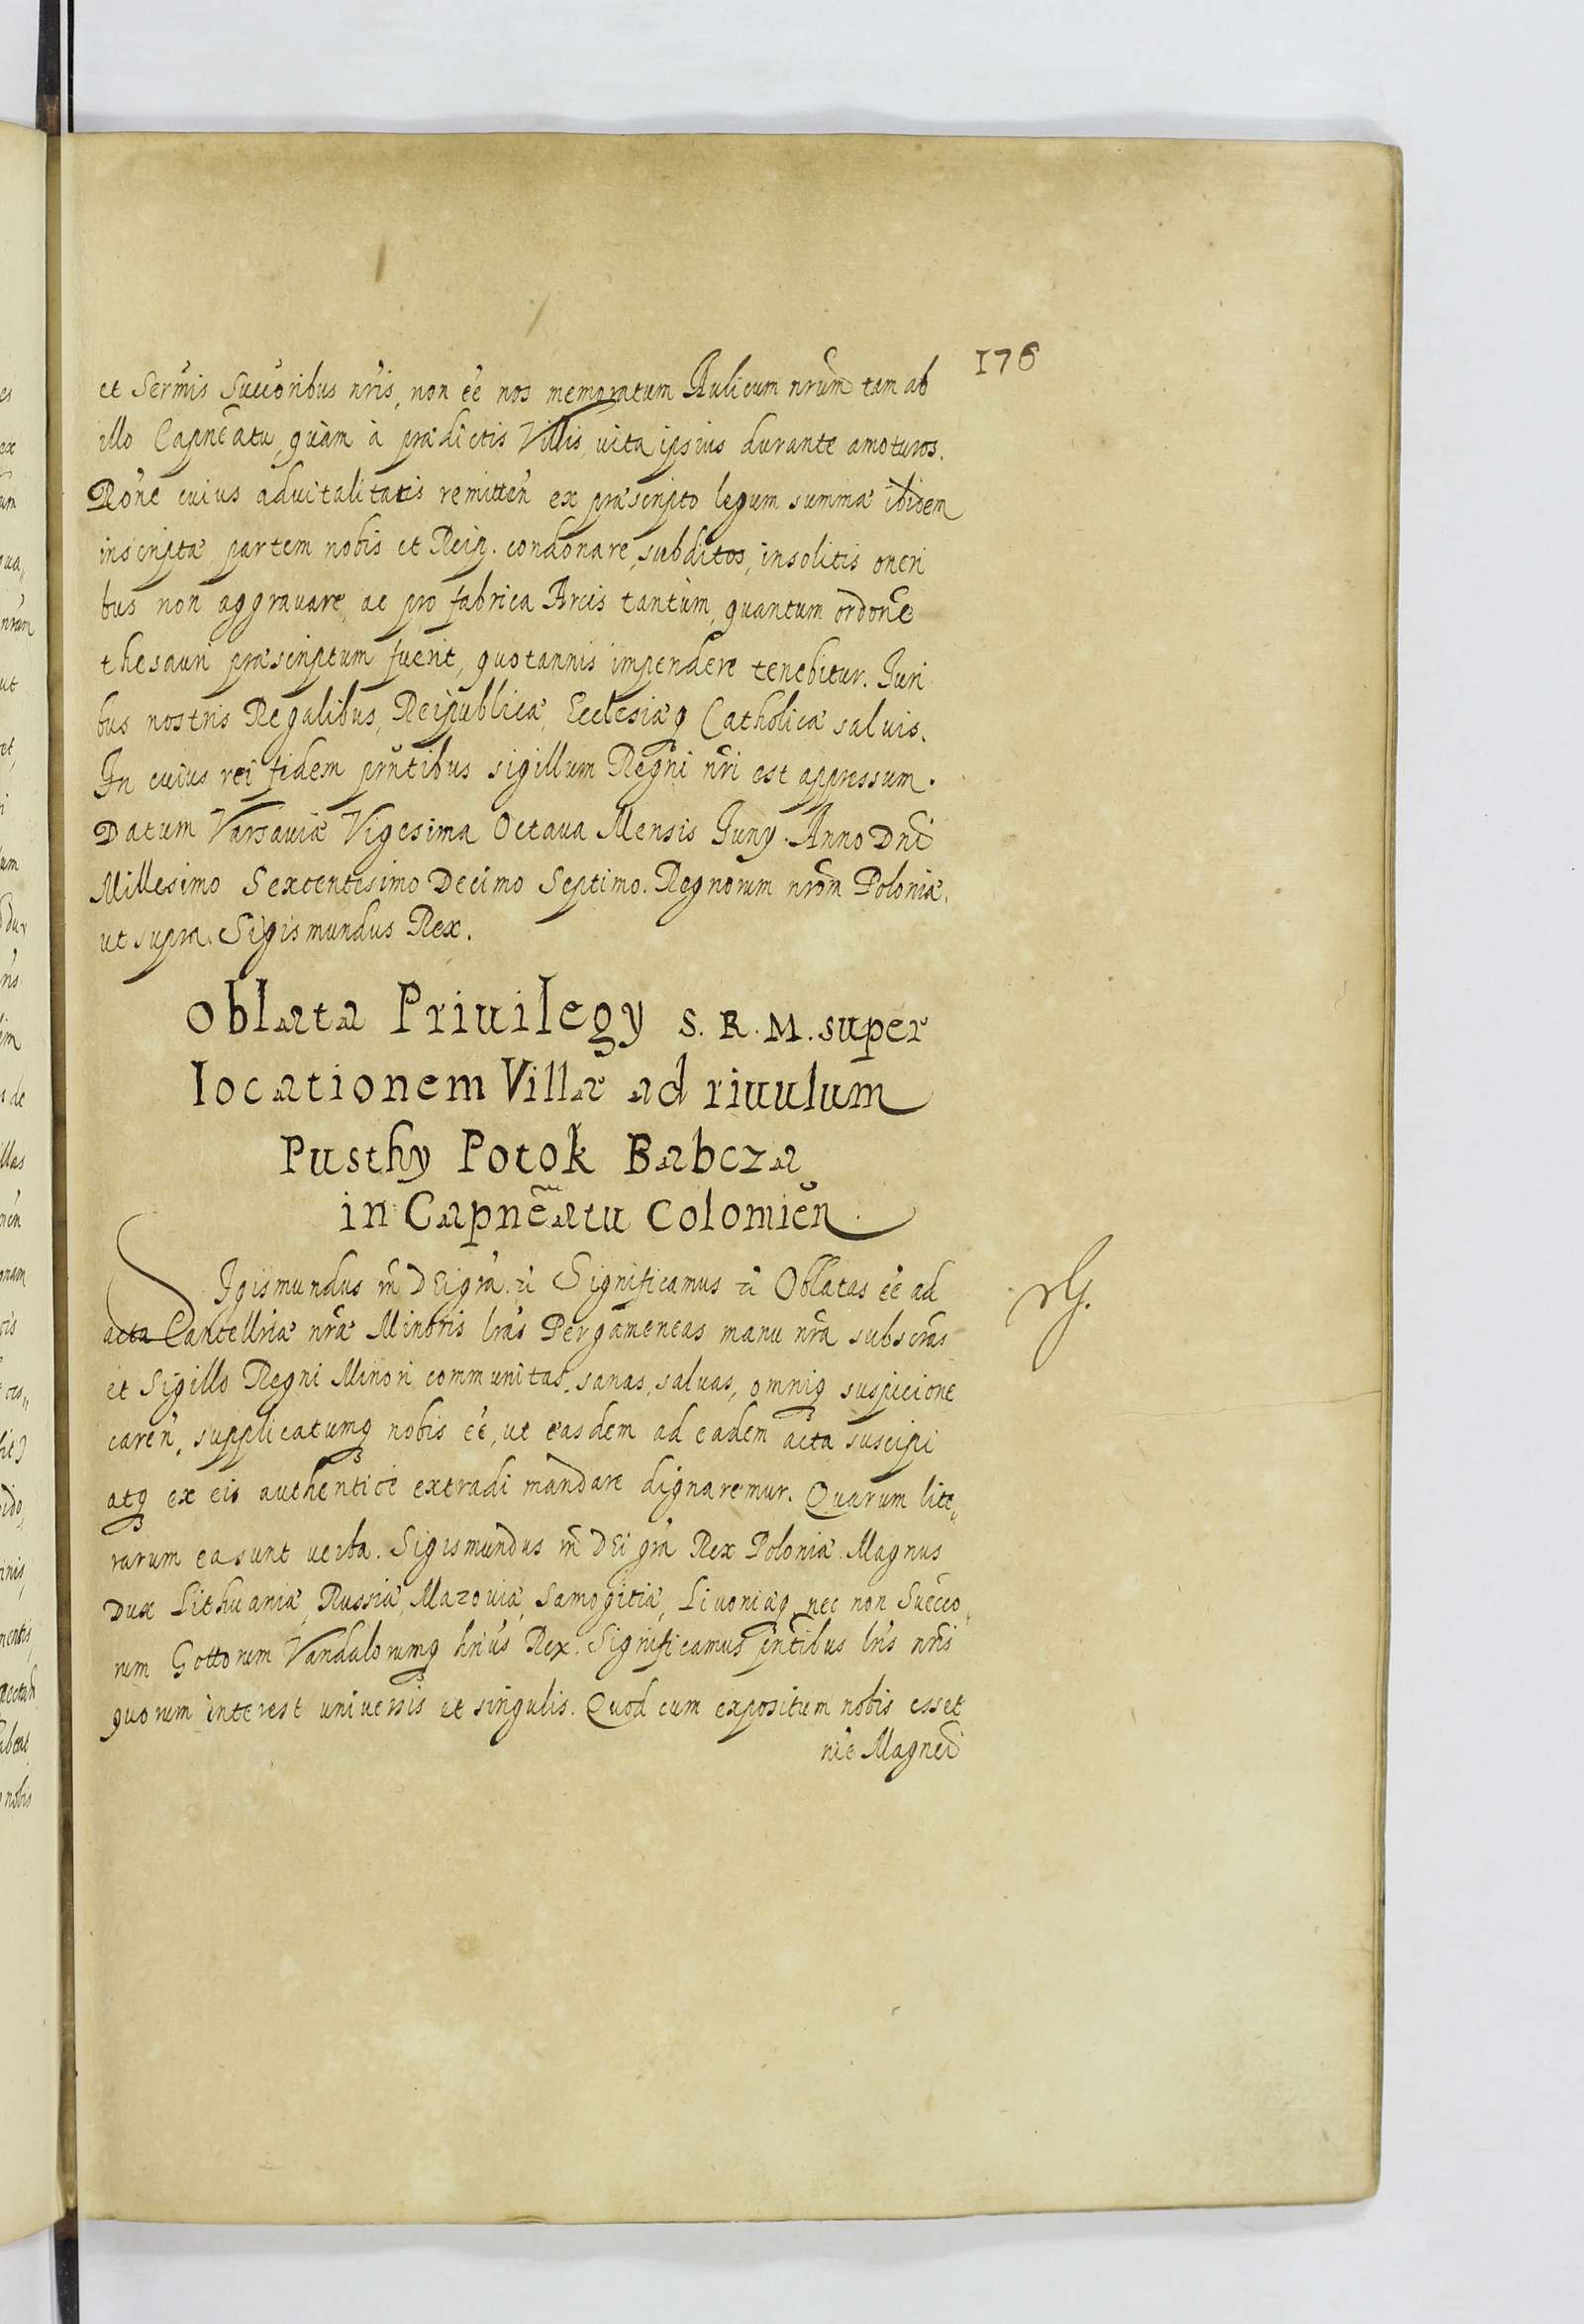 176
et Serm̃is Succoribus nr̃is, non eẽ nos memoratum Aulicum nrũm tam ab
illo Capneãtu, quàm à prædictis Villis, uita ipsius durante amoturos.
Rõne cuius aduitalitatis remitteñ ex præscripto legum summæ ibidem
inscriptæ partem nobis et Reip. condonare, subditos, insolitis oneri
bus non aggrauare, ac pro fabrica Arcis tantùm, quantum ordonẽ
thesauri præscriptum fuerit, quotannis impendere tenebitur. Juri
bus nostris Regalibus, Reipublicæ, Ecclesiæq Catholicæ saluis.
In cuius rei fidem prñtibus sigillum Regni nr̃i est appressum.
Datum Varsauiæ Vigesima Octaua Mensis Juny. Anno Dnĩ
Millesimo Sexcentesimo Decimo Septimo. Regnorum nrõm Poloniæ.
ut supra. Sigismundus Rex.
Oblata Priuilegy S. R. M. super
locationem Villæ ad riuulum
Pusthy Potok Babcza
in Capneãtu Colomieñ.
SIgismundus III DEi grã. &c Significamus &c Oblatas eẽ ad
acta Cancellriæ nrǣ Minoris lrãs Pergameneas manu nrã subscrãs
et Sigillo Regni Minori communitas, sanas, saluas, omniq suspicione
careñ, supplicatumq nobis eẽ, ut easdem ad eadem acta suscipi
atq ex eis authenticè extradi mandare dignaremur. Quarum lite„
rarum ea sunt uerba. Sigismundus III DEi grã Rex Poloniæ. Magnus
Dux Lithuaniæ, Russiæ, Mazouiæ, Samogitiæ, Liuoniæq, nec non Sueco„
rum Gottorum Vandalorumq hr̃ius Rex. Significamus prñtibus lrĩs nrĩs
quorum interest uniuersis et singulis. Quod cum expositum nobis esset